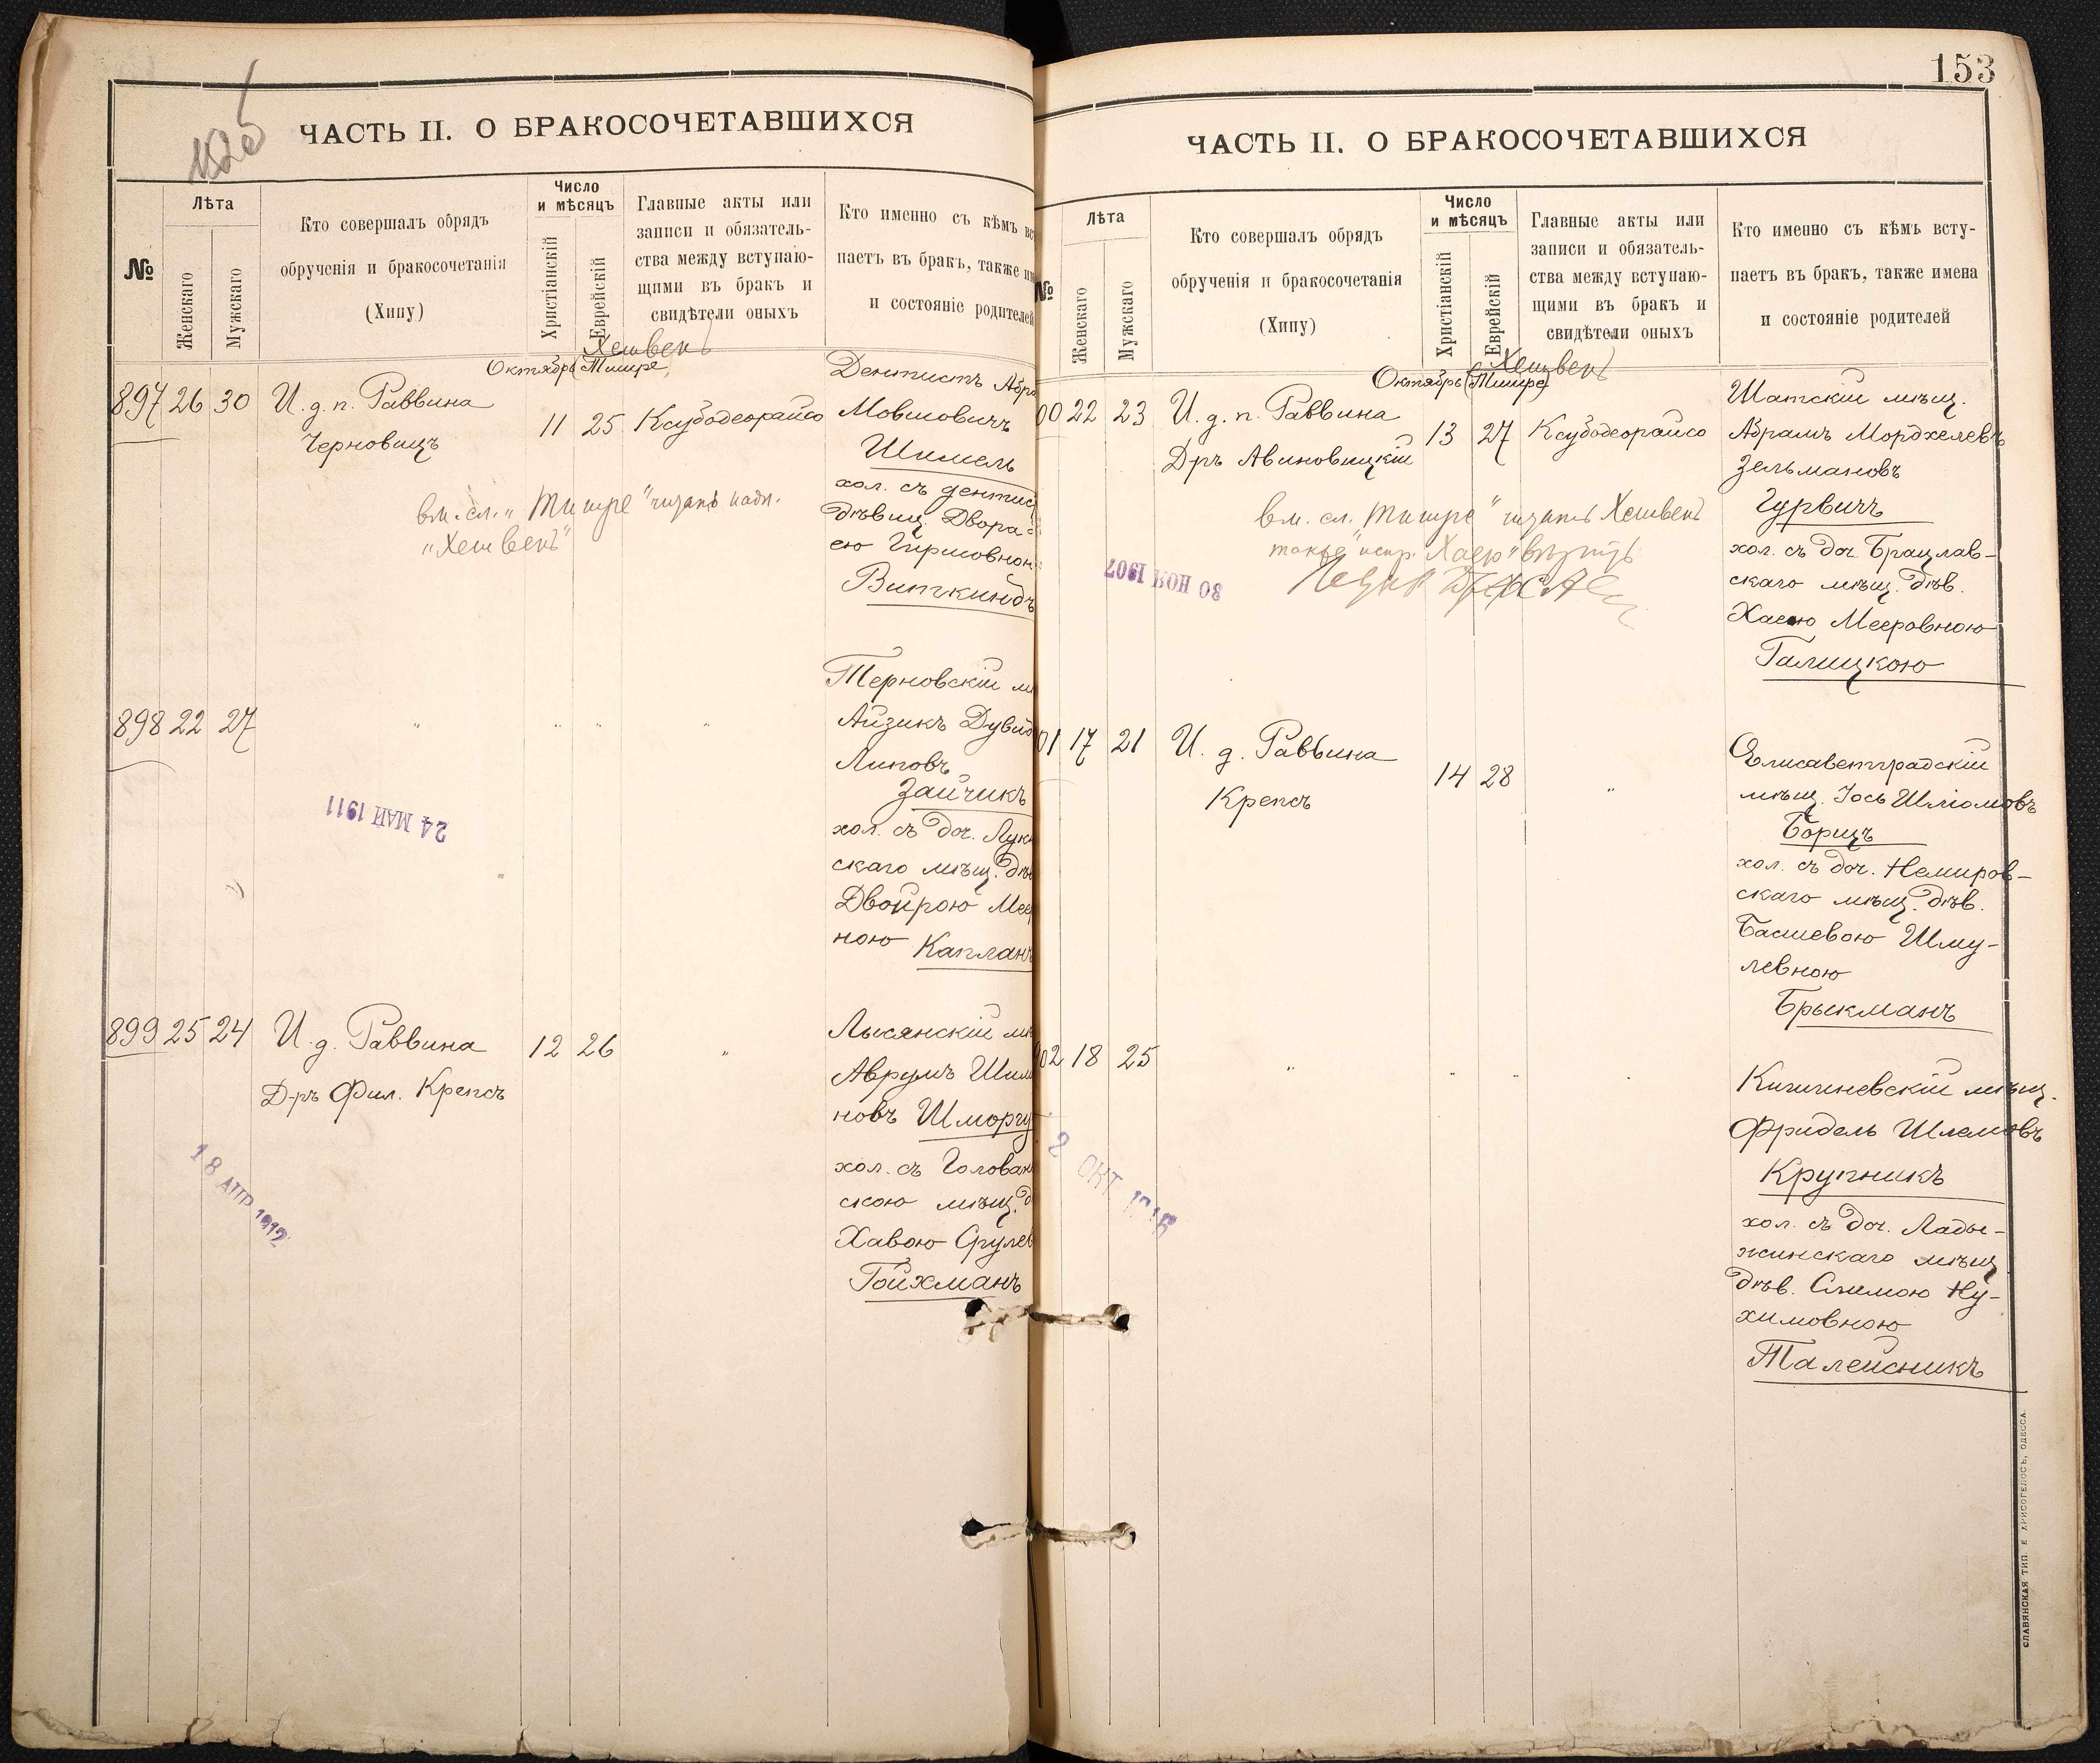 ЧАСТЬ II. О БРАКОСОЧЕТАВШИХСЯ
№
Лѣта
Женскаго
Мужскаго
Кто совершалъ обрядъ
обрученія и бракосочетанія
(Хипу)
Число
и мѣсяцъ
Христіанскій
Еврейскій
Главные акты или
записи и обязатель-
ства между вступаю-
щими въ бракъ и
свидѣтели оныхъ
Кто именно съ кѣмъ вс
паетъ въ бракъ, также им
и состояніе родителей
Хешвенъ
Октябрь (Тишре)
897 26 30 И. д. п. Раввина
Черновицъ
11 25 Ксубодеорайсо
Дентистъ Абра
Мовшовичъ
Шимель
хол. съ дентис
дѣвиц. Двора-
ею Гиршовною
Виткиндъ
вм. сл. „Тишре" читать надп.
„Хешвенъ"
898 22 27 " " " "
Терновскій м
Айзикъ Дувид
Липовъ
Зайчикъ
хол. съ доч. Лук
скаго мѣщ. дѣв
Двойрою Меер
ною Капланъ
24 МАЙ 1911
899 25 24 И. д. Раввина
Д-ръ Фил. Крепсъ
12 26 "
Лысянскій мѣ
Аврумъ Шим
новъ Шморгу
хол. съ Голован
скою мѣщ. д
Хавою Срулев
Гойхманъ
18 АПР 1912
153
ЧАСТЬ II. О БРАКОСОЧЕТАВШИХСЯ
№
Лѣта
Женскаго
Мужскаго
Кто совершалъ обрядъ
обрученія и бракосочетанія
(Хипу)
Число
и мѣсяцъ
Христіанскій
Еврейскій
Главные акты или
записи и обязатель-
ства между вступаю-
щими въ бракъ и
свидѣтели оныхъ
Кто именно съ кѣмъ всту-
паетъ въ бракъ, также имена
и состояніе родителей
Хешвенъ
Октябрь (Тишре)
00 22 23 И. д. п. Раввина
Дръ Авиновицкій
13 27 Ксубодеорайсо
Шатскій мѣщ.
Абрамъ Мордхелевъ
Зельмановъ
Гурвичъ
хол. съ доч. Брацлав-
скаго мѣщ. дѣв.
Хаею Мееровною
Галицкою
вм. сл. Тишре" читать Хешвенъ
также" испр. Хаею" вѣрить
30 НОЯ 1907
01 17 21 И. д. Раввина
Крепсъ
14 28 "
Елисаветградскій
мѣщ. Іось Шліомовъ
Борщъ
хол. съ доч. Немиров-
скаго мѣщ. дѣв.
Басшевою Шму-
левною
Брыкманъ
02 18 25 " " " "
Кишиневскій мѣщ.
Фридель Шлемовъ
Крупникъ
хол. съ доч. Лады-
жинскаго мѣщ
дѣв. Слимою Ну-
химовною
Талейсникъ
2 ОКТ
СЛАВЯНСКАЯ ТИП. Е. ХРИСОГЕЛОСЪ, ОДЕССА.